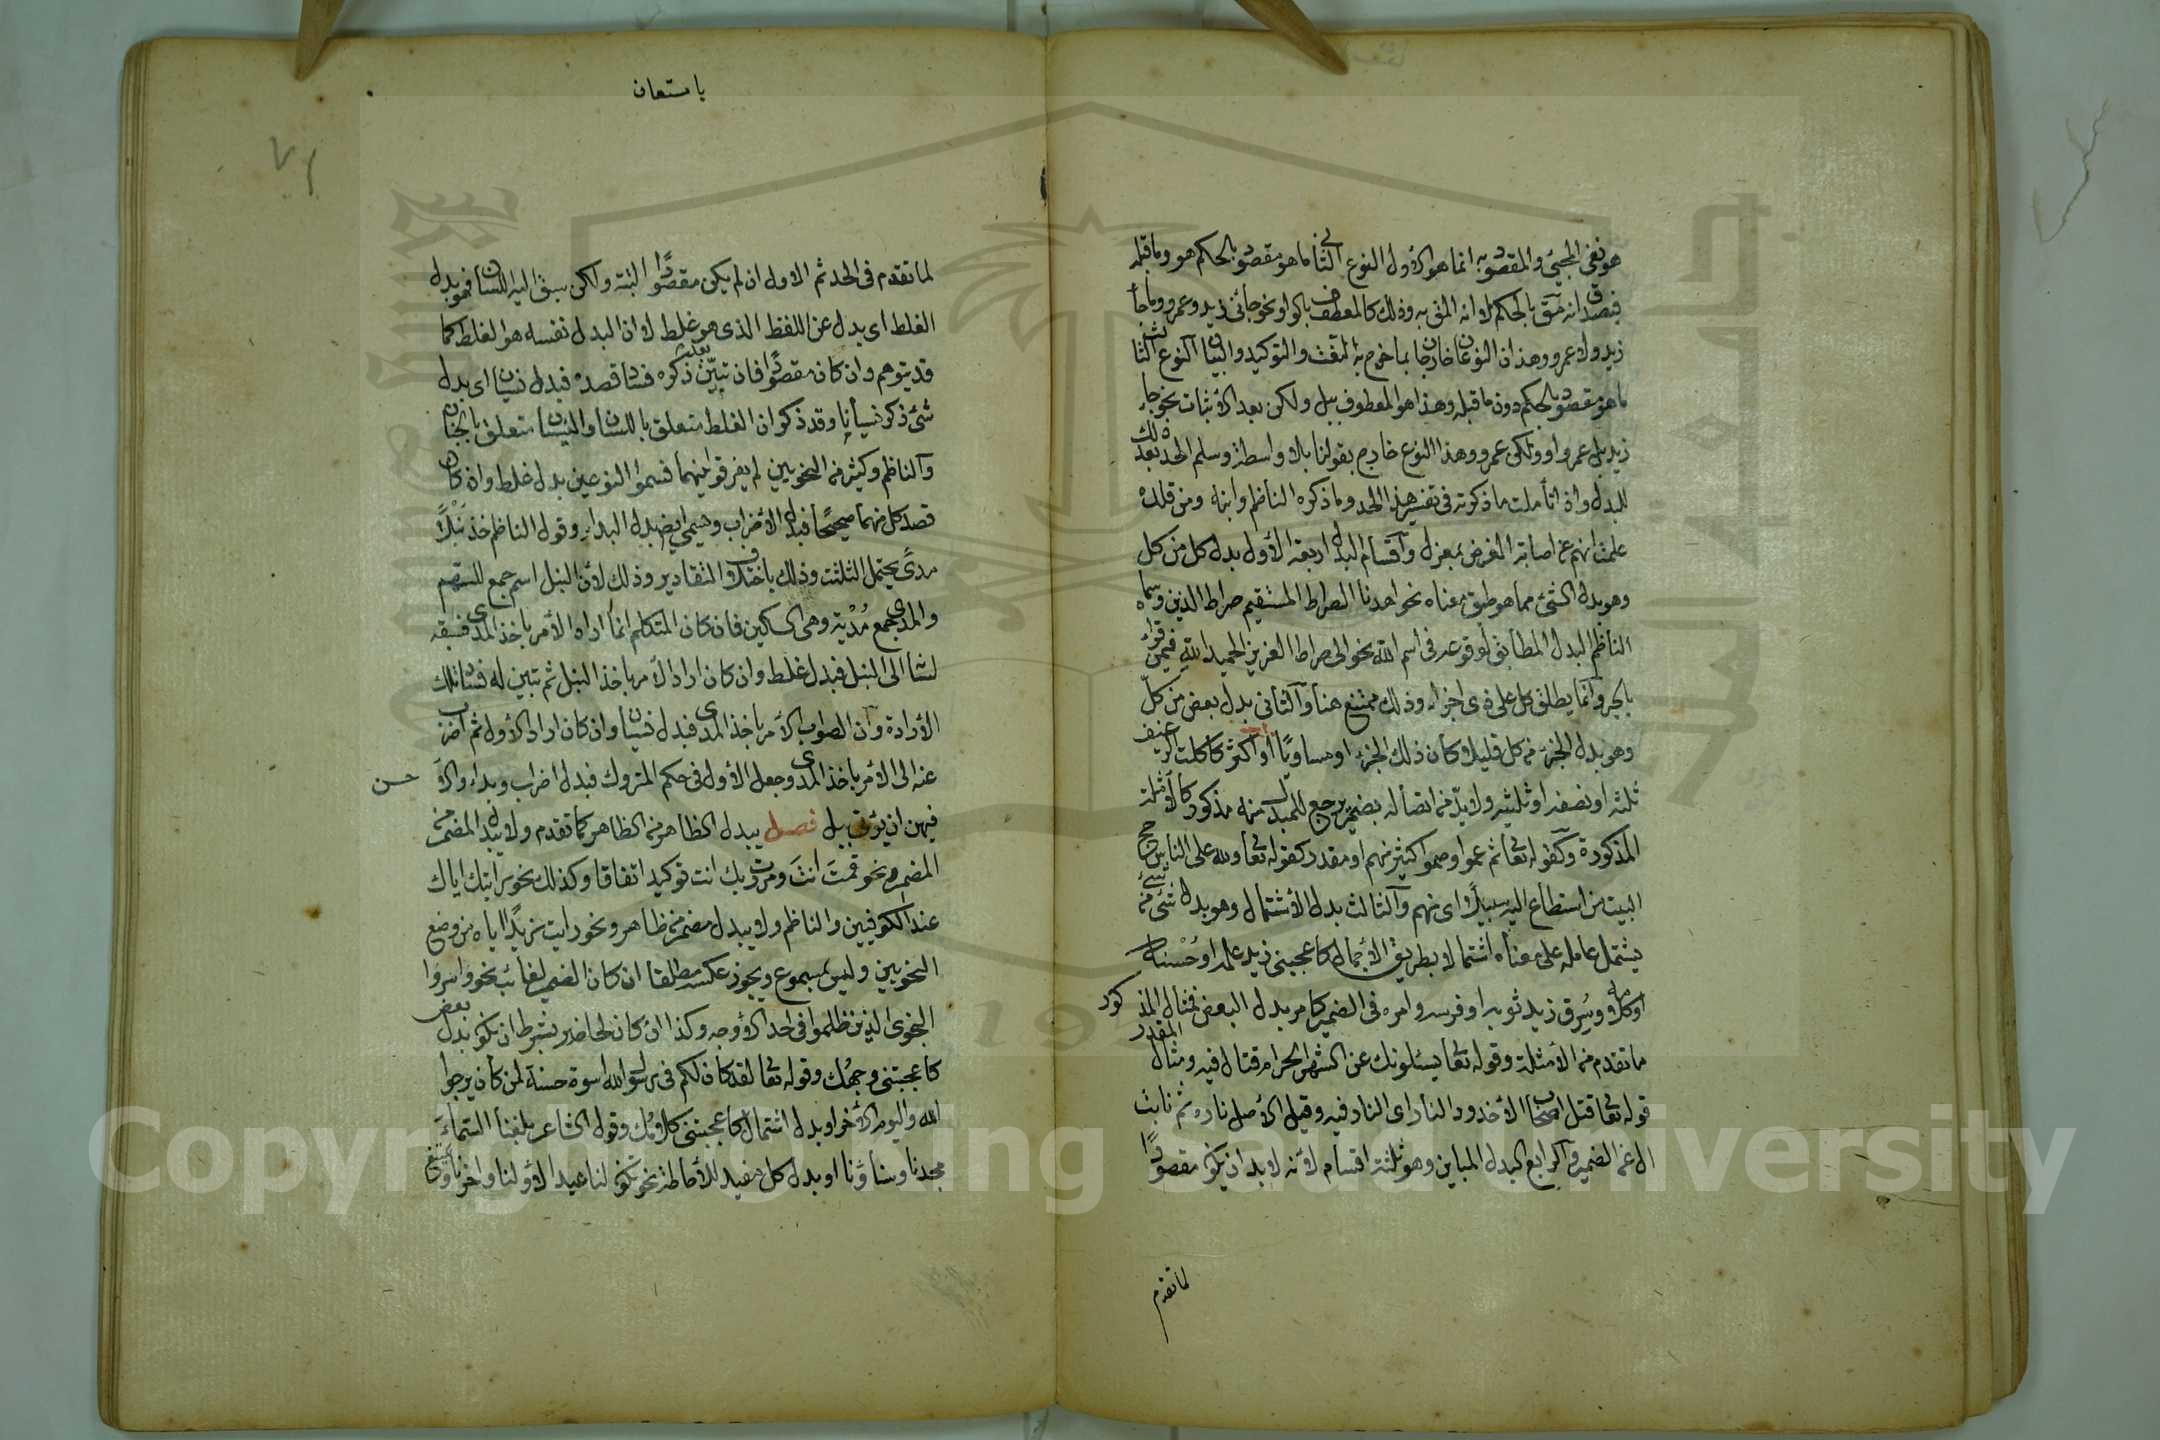 هو نفى المجيئ والمقصود به انما هو الاول النوع الثانى ما هو مقصود بالحكم هو وما قبله
فيصدق انه مق بالحكم لا انه المق به وذلك كالمعطوف بالواو نحو جائنى زيد وعمرو وما جا
زيد ولا عمرو وهذان النوعان خارجان بما خرج به النعت والتوكيد والبيان النوع الثالث
ما هو مقصود بالحكم دون ما قبله وهذا هو المعطوف ببل ولكن بعد الاثبات نحو جا
زيد بل عمرو او ولكن عمرو وهذا النوع خارج بقولنا بلا واسطة وسلم الحد بعد ذلك
للبدل واذا تأملت ما ذكرته فى تفسير هذا الحد وما ذكره الناظم وابنه ومن قلده
علمت انهم عن اصابة الغرض بمعزل وآقسام البدل اربعة الاول بدل كل من كل
وهو بدل الشئ مما هو طبق معناه نحو اهدنا الصراط المستقيم صراط الذين وسماه
الناظم البدل المطابق لوقوعه فى اسم الله نحو الى صراط العزيز الحميد الله فيمن قرأ
بالجر وآنما يطلق كل على ذى اجزاء وذلك ممتنع هنا وآلثانى بدل بعض من كل
وهو بدل الجزء من كل قليلا كان ذلك الجزء او مساويا او اكثر كاكلت الرغيف
ثلثه او نصفه او ثلثيه ولا بد من اتصاله بضمير يرجع للمبدل منه مذكور كالامثلة
المذكورة وكقوله تعا ثم عموا وصموا كثير منهم او مقدر كقوله تعا ولله على الناس حج
البيت من استطاع اليه سبيلا اى منهم وآلثالث بدل الاشتمال وهو بدل شئ من شئ
يشتمل عامله على معناه اشتمالا بطريق الاجمال كاعجبنى زيد علمه او حسنه
او كلامه وسرق زيد ثوبه او فرسه وامره فى الضمير كامر بدل البعض فمثال المذكور
ما تقدم من الامثلة وقوله تعا يسئلونك عن الشهر الحرام قتال فيه ومثال المقدر
قوله تعا قتل اصحاب الاخدود النار اى النار فيه وقيل الاصل ناره ثم نابت
ال عن الضمير وآلرابع البدل المباين وهو ثلثة اقسام لانه لا بد ان يكون مقصودا
لما تقدم
يا مستعان
لما تقدم فى الحد ثم الاول ان لم يكن مقصودا البتة ولكن سبق اليه اللسان فهو بدل
الغلط اى بدل عن اللفظ الذى هو غلط لا ان البدل نفسه هو الغلط كما
قد يتوهم وان كان مقصودا فان تبين بعد ذكره فساد قصده فبدل نسيان اى بدل
شئ ذكر نسيانا وقد ذكر ان الغلط متعلق باللسان والنسيان متعلق بالجنان
وآلناظم وكثير من النحويين لم يفرقوا بينهما فسموا النوعين بدل غلط وان كان
قصد كل منهما صحيحا فبدل الاضراب ويسمى ايضا بدل البداء وقول الناظم خذ نبلا
مدى يحتمل الثلثة وذلك باختلاف التقادير وذلك لان النبل اسم جمع للسهم
والمدى جمع مدية وهى السكين فان كان المتكلم انما اراد الامر باخذ المدى فسبقه
لسانه الى النبل فبدل غلط وان كان اراد الامر باخذ النبل ثم تبين له فساد تلك
الارادة وان الصواب الامر باخذ المدى فبدل نسيان وان كان اراد الاول ثم اضرب
عنه الى الامر باخذ المدى وجعل الاول فى حكم المتروك فبدل اضراب وبداء والا حسن
فيهن ان يؤتى ببل فصل يبدل الظاهر من الظاهر كما تقدم ولا يبدل المضمر من
المضمر نحو قمت انت ومررت بك انت توكيد اتفاقا وكذلك نحو رأيتك اياك
عند الكوفيين والناظم ولا يبدل مضمر من ظاهر ونحو رايت زيدا اياه من وضع
النحويين وليس بمسموع ويجوز عكسه مطلقا ان كان الضمير لغائب نحو واسروا
النجوى الذين ظلموا فى احد الاوجه وكذا ان كان لحاضر بشرط ان يكون بدل بعض
كاعجبتنى وجهك وقوله تعا لقد كان لكم فى رسول الله اسوة حسنة لمن كان يرجوا
الله واليوم الاخر او بدل اشتمال كاعجبتنى كلامك وقول الشاعر بلغنا السماء
مجدنا وسناؤنا او بدل كل مفيد للاحاطة نحو تكون لنا عيدا لاولنا واخرنا
Copyright © King Saud University